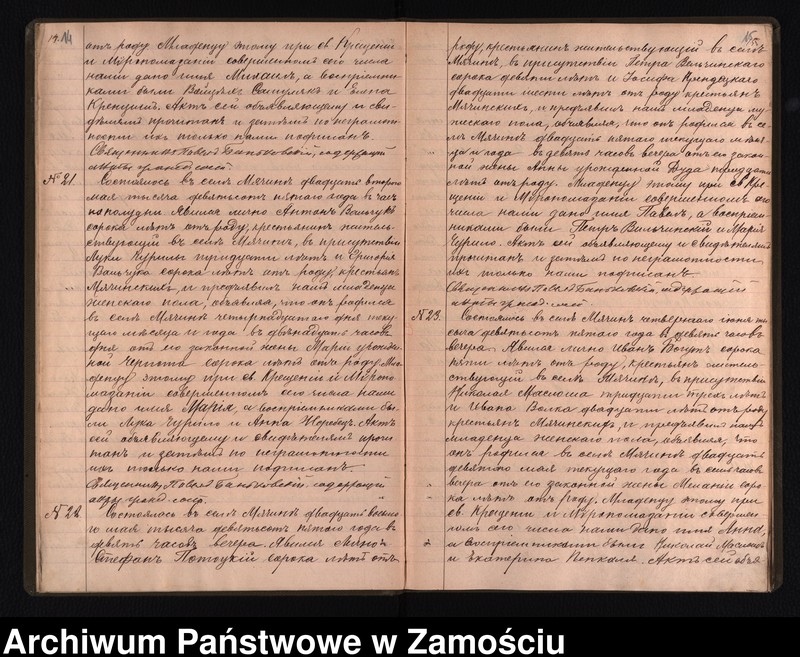 14.
отъ роду. Младенцу этому при Св. Крещеніи
и Мѵропомазаніи совершенномъ сего числа
нами дано имя Михаилъ, а воспріемни-
ками были и Елена
Актъ сей объявляющему и сви-
дѣтелямъ прочитанъ и затѣмъ по неграмот-
ности ихъ только нами подписанъ.
Священникъ Павелъ содержащій
акты гражд. сост.
№ 21. Состоялось въ селѣ Мячинъ двадцать второго
мая тысяча девятьсотъ пятого года въ часъ
пополудни. Явился лично Антонъ Вальчукъ
сорока лѣтъ отъ роду, крестьянинъ житель-
ствующій въ селѣ Мячинъ, въ присутствіи
Луки Чурило тридцати лѣтъ и Григорія
Вальчука сорока лѣтъ отъ роду, крестьянъ
Мячинскихъ, и предъявилъ намъ младенца
женскаго пола, объявляя, что онъ родился
въ селѣ Мячинъ четырнадцатого дня теку-
щаго мѣсяца и года въ двѣнадцать часовъ
дня отъ его законной жены Маріи урожден-
ной сорока лѣтъ отъ роду. Мла-
денцу этому при Св. Крещеніи и Мѵропо-
мазаніи совершенномъ сего числа нами
дано имя Марія, а воспріемниками бы-
ли Лука Чурило и Анна Актъ
сей объявляющему и свидѣтелямъ прочи-
танъ и затѣмъ по неграмотности
ихъ только нами подписанъ.
Священникъ Павелъ содержащій
акты гражд. сост.
№ 22. Состоялось въ селѣ Мячинъ двадцать восьмо-
го мая тысяча девятьсотъ пятого года въ
девять часовъ вечера. Явился лично
Стефанъ Потоцкій сорока лѣтъ отъ
15.
роду, крестьянинъ жительствующій въ селѣ
Мячинъ, въ присутствіи Петра Вальчинскаго
сорока девяти лѣтъ и Іосифа
двадцати шести лѣтъ отъ роду крестьянъ
Мячинскихъ, и предъявилъ намъ младенца му-
жескаго пола, объявляя, что онъ родился въ се-
лѣ Мячинъ двадцать пятаго текущаго мѣся-
ца и года въ девять часовъ вечера отъ его закон-
ной жены Анны урожденной Дуда тридцати
лѣтъ отъ роду. Младенцу этому при Св. Кре-
щеніи и Мѵропомазаніи совершенномъ сего
числа нами дано имя Павелъ, а воспріем-
никами были Петръ Вальчинскій и Марія
Чурило. Актъ сей объявляющему и свидѣтелямъ
прочитанъ и затѣмъ по неграмотности
ихъ только нами подписанъ.
Священникъ Павелъ содержащій
акты гражд. сост.
№ 23. Состоялось въ селѣ Мячинъ четвертаго іюня ты-
сяча девятьсотъ пятого года въ девять часовъ
вечера. Явился лично Иванъ сорока
пяти лѣтъ отъ роду, крестьянинъ житель-
ствующій въ селѣ Мячинъ, въ присутствіи
Николая тридцати трехъ лѣтъ
и Ивана Волка двадцати лѣтъ отъ роду
крестьянъ Мячинскихъ, и предъявилъ намъ
младенца женскаго пола, объявляя, что
онъ родился въ селѣ Мячинъ двадцать
девятаго мая текущаго года въ семь часовъ
вечера отъ его законной жены Меланіи соро-
ка лѣтъ отъ роду. Младенцу этому при
Св. Крещеніи и Мѵропомазаніи совершен-
номъ сего числа нами дано имя Анна,
а воспріемниками были Николай
и Екатерина Актъ сей объя-
Archiwum Państwowe w Zamościu